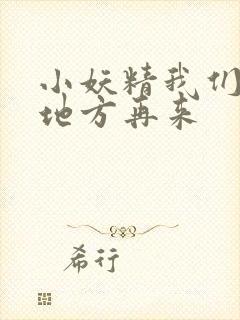 小妖精我们
地方再来
希行